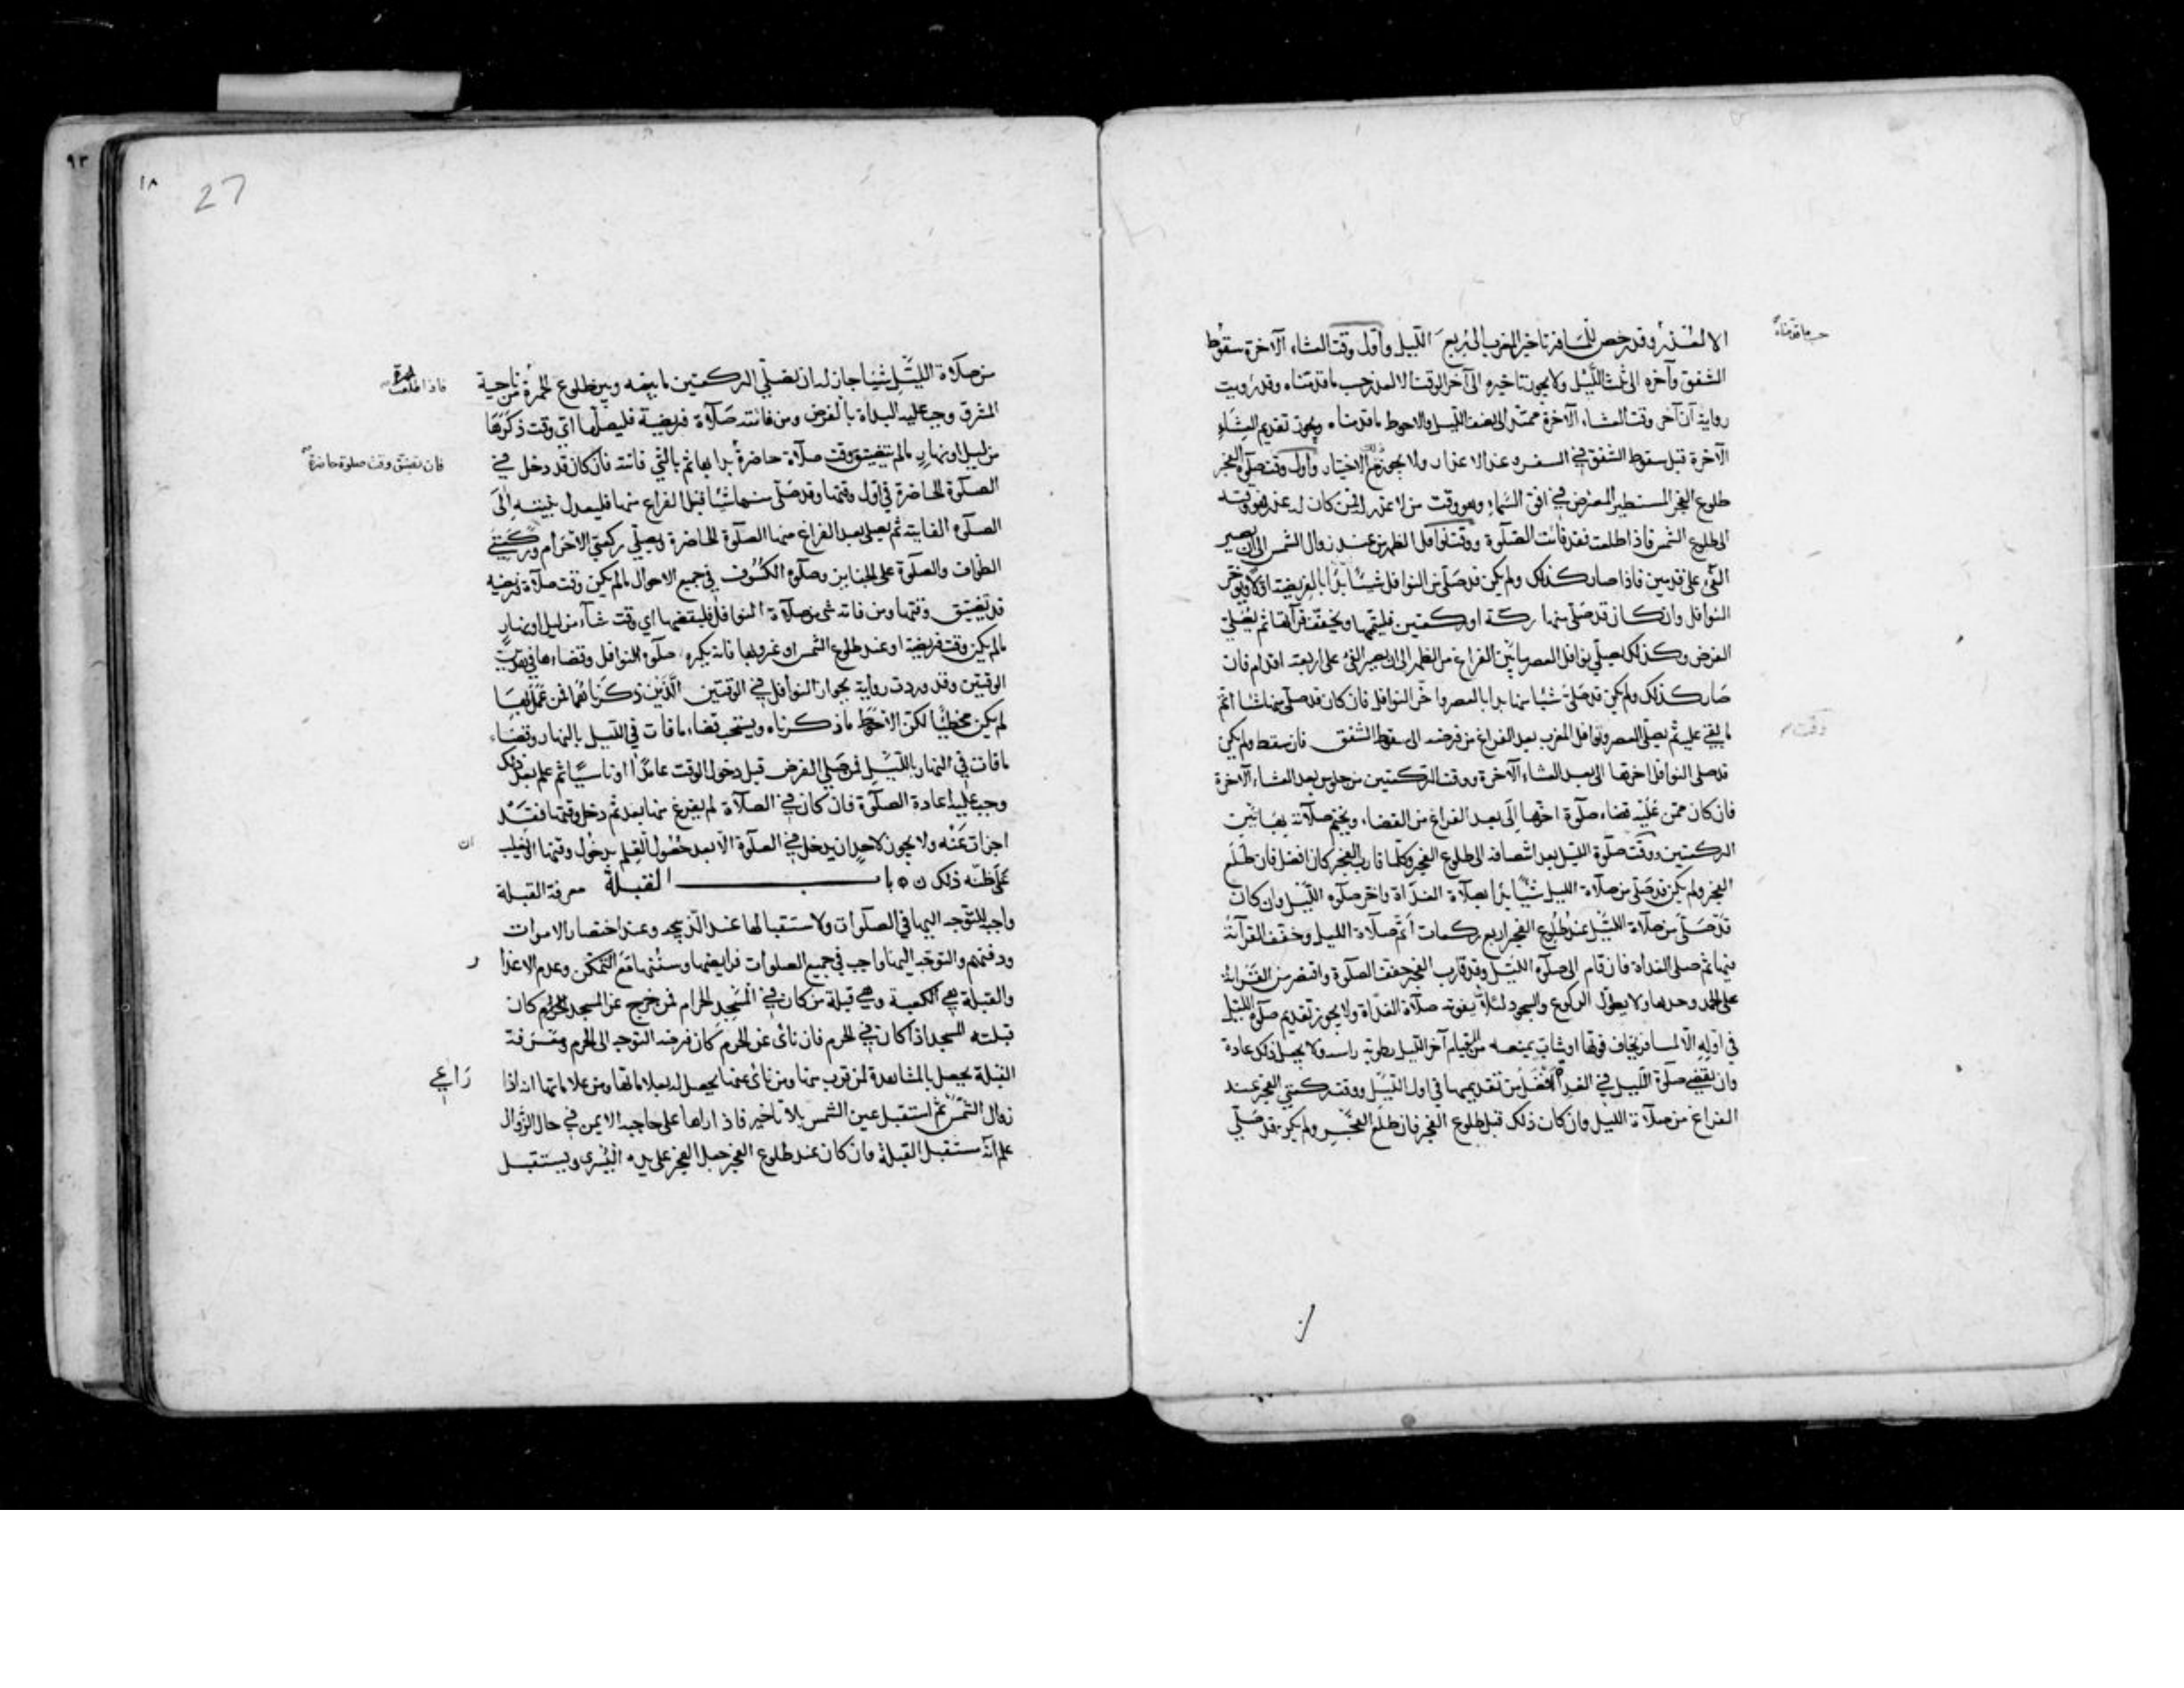 الا لعذر وقد رخص للمسافر تاخير المغرب الى ربع الليل واول وقت العشاء الآخرة سقوط
حسب ما قدمناه
الشفق وآخره الى ثلث الليل ولا يجوز تاخيره الى آخر الوقت الا لعذر حسب ما قدمناه وقد رويت
رواية ان آخر وقت العشاء الآخرة ممتد الى نصف الليل والاحوط ما قدمناه ويجوز تقديم العشاء
الآخرة قبل سقوط الشفق في السفر وعند الاعذار ولا يجوز مع الاختيار واول وقت صلوة الفجر
طلوع الفجر المستطير المعترض في افق السماء وهو وقت من لا عذر له فمن كان له عذر فوقته
الى طلوع الشمس فاذا طلعت فقد فاتت الصلوة ووقت نوافل الظهر من عند زوال الشمس الى ان يصير
الفئ على قدمين فاذا صار كذلك ولم يكن قد صلى من النوافل شيئا بدأ بالفريضة اولا ويؤخر
النوافل وان كان قد صلى منها ركعة او ركعتين فليتمها ويخفف قرآتها ثم يصلي
الفرض وكذلك يصلي نوافل العصر ما بين الفراغ من الظهر الى ان يصير الفئ على اربعة اقدام فان
صار كذلك ولم يكن قد صلى شيئا منها بدا بالعصر واخر النوافل فان كان قد صلى منها شيئا اتم
ما بقي عليه ثم يصلي العصر ونوافل المغرب بعد الفراغ من فرضه الى سقوط الشفق فان سقط ولم يكن
وقت
قد صلى النوافل اخرها الى بعد العشاء الآخرة ووقت الركعتين من جلوس بعد العشاء الآخرة
فان كان ممن عليه قضاء صلوة اخرها الى بعد الفراغ من القضاء ويختم صلاته بهاتين
الركعتين ووقت صلوة الليل بعد انتصافه الى طلوع الفجر وكلما قارب الفجر كان افضل فان طلع
الفجر ولم يكن قد صلى من صلاة الليل شيئا بدأ بصلاة الغداة واخر صلوة الليل وان كان
قد صلى من صلاة الليل عند طلوع الفجر اربع ركعات اتم صلاة الليل وخفف القرآئة
فيها ثم صلى الغداة فان قام الى صلوة الليل وقد قارب الفجر خفف الصلوة واقتصر من القرائة
على الحمد وحدها ولا يطول الركوع والسجود لئلا يفوته صلاة الغداة ولا يجوز تقديم صلوة الليل
في اوله الا لمسافر يخاف فوتها او شاب يمنعه من القيام آخر الليل رطوبة راسه ولا يجعل ذلك عادة
وان يقضي صلوة الليل في الغد افضل من تقديمها في اول الليل ووقت ركعتي الفجر عند
الفراغ من صلاة الليل وان كان ذلك قبل طلوع الفجر فان طلع الفجر ولم يكن قد صلى
٩٣
١٨
27
من صلاة الليل شيا جاز له ان يصلي الركعتين ما بينه وبين طلوع الحمرة من ناحية
فاذا طلعت الحمرة
المشرق وجب عليه البداة بالفرض ومن فاتته صلاة فريضة فليصلها اي وقت ذكرها
من ليل او نهار ما لم يتضيق وقت صلاة حاضرة بدا بها ثم بالتي فاتته فان كان قد دخل في
فان تضيق وقت صلوة حاضرة
الصلوة الحاضرة في اول وقتها وقد صلى منها شيئا قبل الفراغ منها فليعدل بنيته الى
الصلوة الفايتة ثم يصلي بعد الفراغ منها الصلوة الحاضرة ويصلي ركعتي الاحرام وركعتي
الطواف والصلوة على الجنايز وصلوة الكسوف في جميع الاحوال ما لم يكن وقت صلاة فريضه
قد تضيق وقتها ومن فاته شئ من صلاة النوافل فليقضها اي وقت شآء من ليل او نهار
ما لم يكن وقت فريضة او عند طلوع الشمس او غروبها فانه يكره صلوة النوافل وقضاءها في هذين
الوقتين وقد وردت رواية بجواز النوافل في الوقتين الذين ذكرناهما فمن عمل بها
لم يكن مخطيا لكن الاحوط ما ذكرناه ويستحب قضاء ما فات في الليل بالنهار وقضاء
ما فات في النهار بالليل فمن صلى الفرض قبل دخول الوقت عامدا او ناسيا ثم علم بعد ذلك
وجب عليه اعادة الصلوة فان كان في الصلاة لم يفرغ منها بعد ثم دخل وقتها فقد
اجزات عنه ولا يجوز لاحد ان يدخل في الصلوة الا بعد حصول العلم بدخول وقتها او يغلب
ان
على ظنه ذلك باب القبلة معرفة القبلة
واجبه للتوجه اليها في الصلوات ولاستقبالها عند الذبيحه وعند احتضار الاموات
ودفنهم والتوجه اليها واجب في جميع الصلوات فرايضها وسننها مع التمكن وعدم الاعذا
ر
والقبلة هي الكعبة وهي قبلة من كان في المسجد الحرام فمن خرج عن المسجد الحرام كان
قبلته المسجد اذا كان في الحرم فان نائ عن الحرم كان فرضه التوجه الى الحرم ومعرفة
القبلة يحصل بالمشاهدة لمن قرب منها ومن نائ عنها يحصل له بعلاماتها ومن علاماتها انه اذا
راعي
زوال الشمس ثم استقبل عين الشمس بلا تاخير فاذا راها على حاجبه الايمن في حال الزوال
علم انه مستقبل القبلة وان كان عند طلوع الفجر جعل الفجر على يده اليسرى ويستقبل